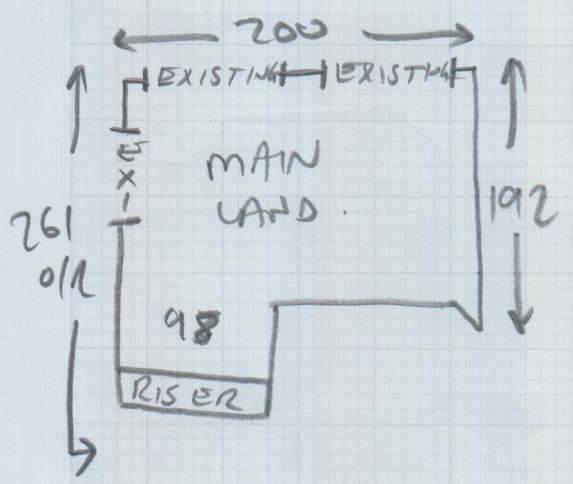 200
EXISTING EXISTING
EXI
MAIN
LAND.
261
O/R
192
98
RISER